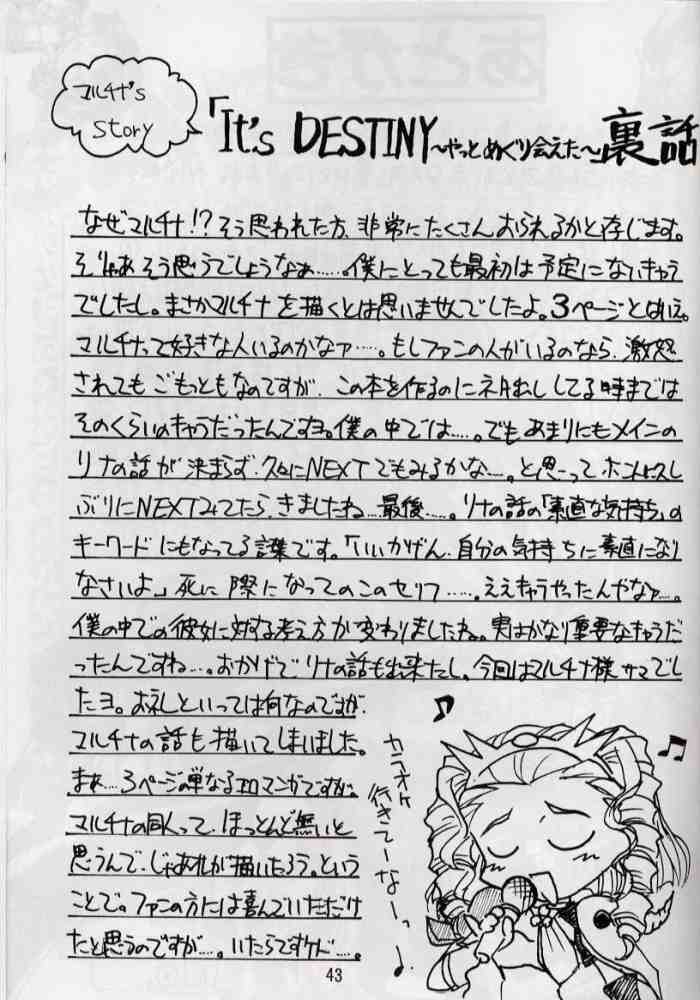 マルチナ's
Story
「It's DESTINY～やっとめぐり会えた～」裏話
なぜマルチナ!?そう思われた方、非常にたくさんおられるかと存じます。
そりゃあそう思うでしょうなぁ……。僕にとっても最初は予定にないきゃら
でしたし。まさかマルチナを描くとは思いませんでしたよ。3ページとはいえ。
マルチナって好きな人いるのかなァ……。もしファンの人がいるのなら、激怒
されてもごもっともなのですが、この本を作るのにネタ出ししてる時までは
そのくらいのきゃらだったんですヨ。僕の中では……。でもあまりにもメインの
リナの話が決まらず、久々にNEXTでもみるかな……。と思ってホント久し
ぶりにNEXTみてたら、きましたね…最後……。リナの話の「素直な気持ち」の
キーワードにもなってる言葉です。「いいかげん、自分の気持ちに素直になり
なさいよ」死に際になってのこのセリフ……。ええキャラやったんやなァ…。
僕の中での彼女に対する考え方が変わりましたね。実はかなり重要なキャラだ
ったんですね…。おかげでリナの話も出来たし、今回はマルチナ様サマでし
たヨ。お礼といっては何なのですが、
マルチナの話も描いてしまいました。
まぁ…3ページの単なるエロマンガですが。
マルチナの同人って、ほっとんど無いと
思うんで、じゃあオレが描いたろう。という
ことで。ファンの方には喜んでいただけ
たと思うのですが……。いたらですケド……。
カラオケ
行きてーなーっ
43